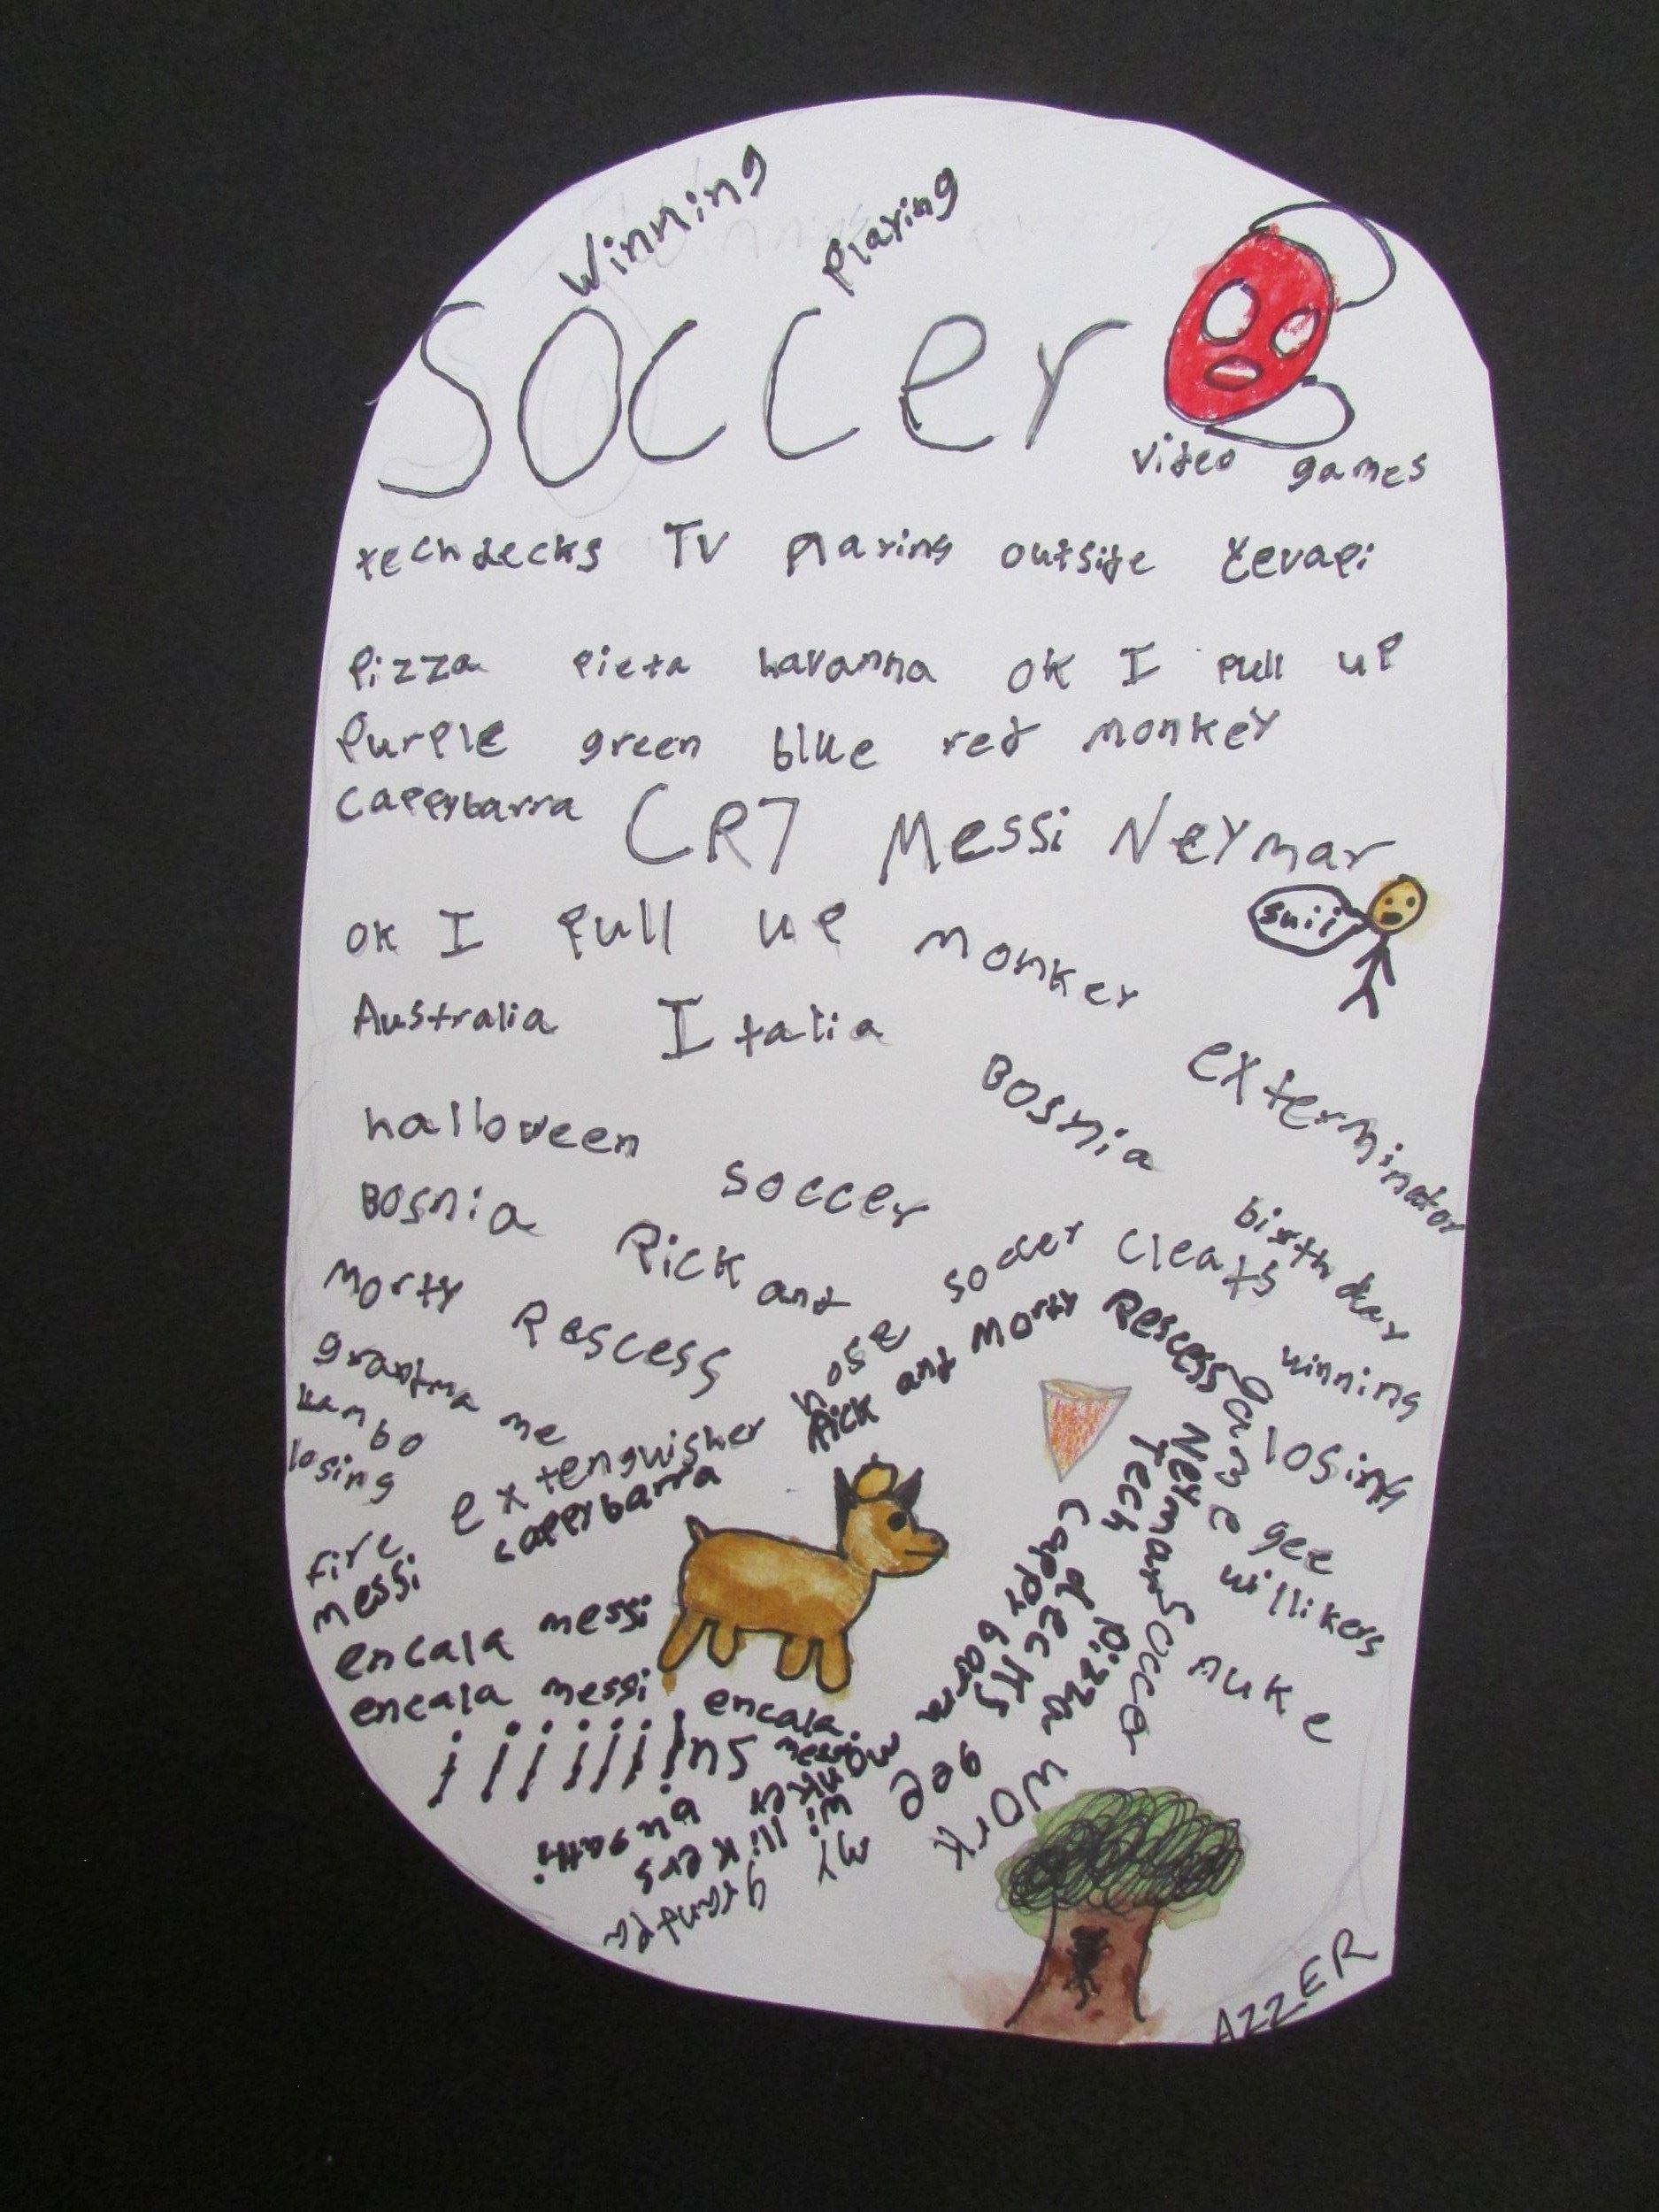 winning
playing
soccer
video games
techdecks TV playing outside ćevapi
Pizza pieta havanna ok I pull up
Purple green blue red monkey
cappybarra CR7 Messi Neymar
suii
ok I pull up monkey
Australia Italia
Bosnia exterminator
halloween
soccer
Bosnia Rick and
Morty Rescess
birthday
soccer cleats
grandma me
kambo
losing
fire extenguisher hose
Rick and Morty Rescess Game
winning
losing
messi cappybarra
Neymar soccer
Tech decks pizza
cappybarra
gee willikers
nuke
encala messi
encala messi
encala messi
suiiiiiii
monkey
bugatti
gee willikers
my grandpa
work
AZZER